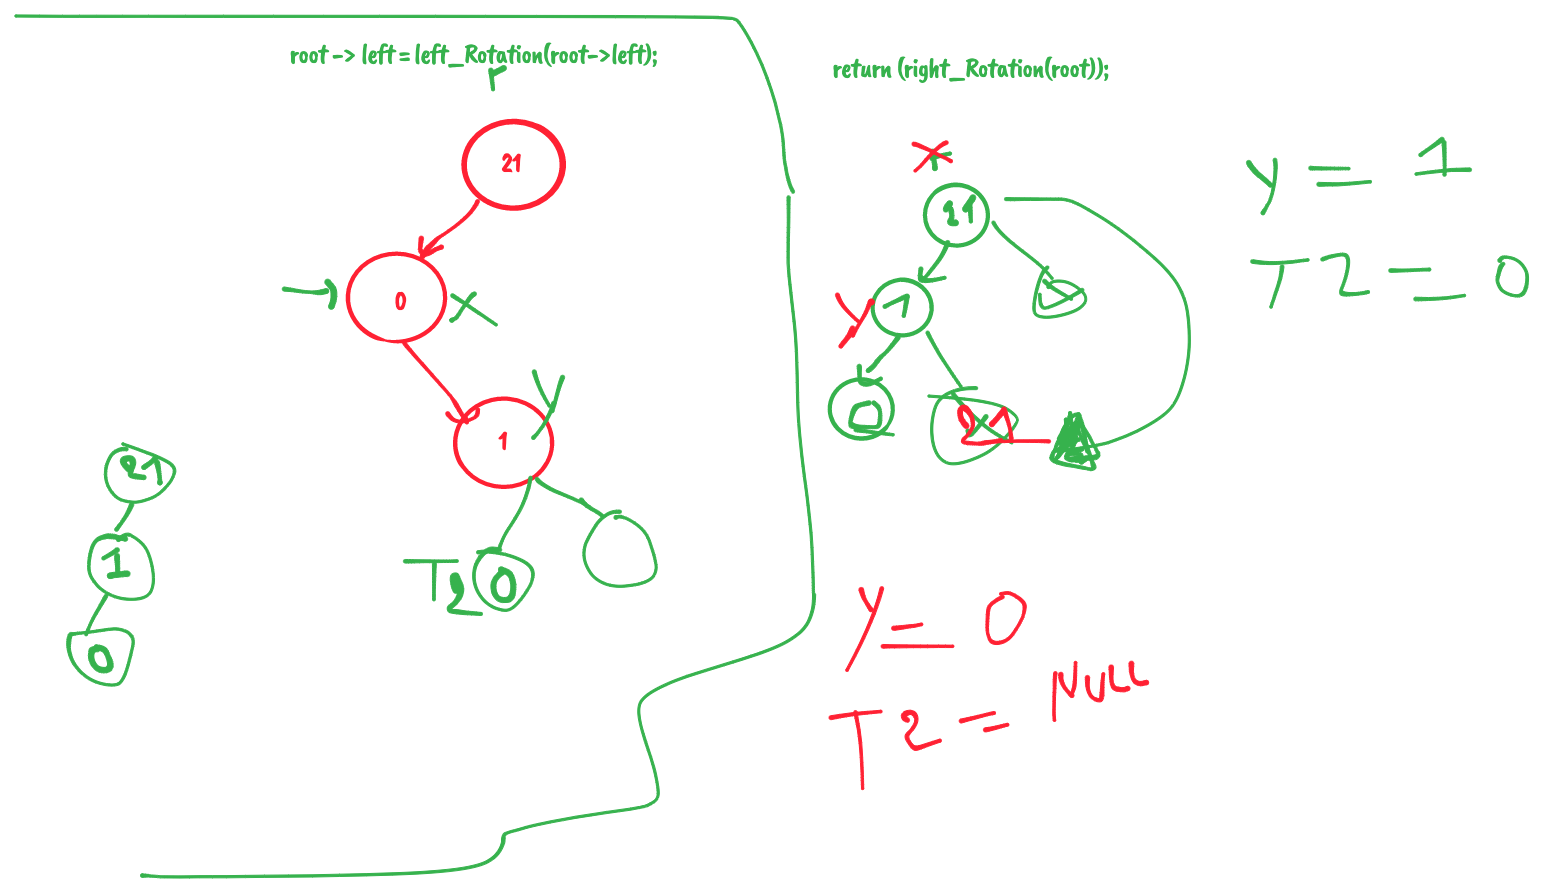 root -> left = left_Rotation(root->left);
r
21
0
x
y
1
T2 0
21
1
0
return (right_Rotation(root));
21
y 1
0
21
y = 1
T2 = 0
y = 0
T2 = NULL